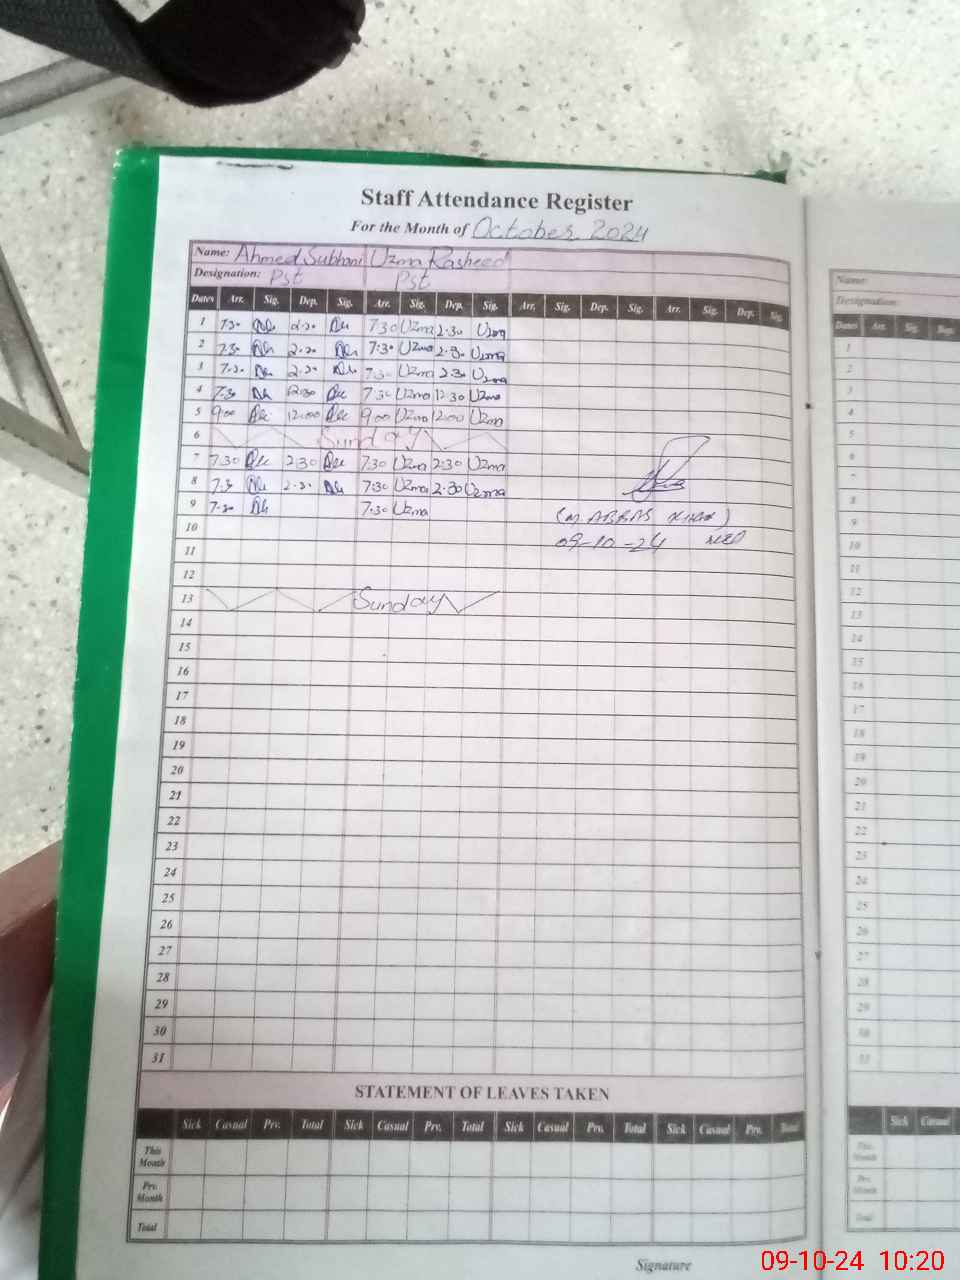 Staff Attendance Register
For the Month of October 2024
Name: Ahmed Subhani Uzma Rasheed
Designation: Pst Pst
Dates Arr. Sig. Dep. Sig. Arr. Sig. Dep. Sig. Arr. Sig. Dep. Sig. Arr. Sig. Dep. Sig.
1 7.30 2.30 7:30 Uzma 2:30 Uzma
2 7.30 2.30 7:30 Uzma 2:30 Uzma
3 7.30 2.30 7:30 Uzma 2:30 Uzma
4 7.30 12:30 7:30 Uzma 12:30 Uzma
5 9:00 12:00 9:00 Uzma 12:00 Uzma
6 Sunday
7 7:30 2:30 7:30 Uzma 2:30 Uzma
8 7:30 2.30 7:30 Uzma 2:30 Uzma
9 7.30 7:30 Uzma
(M. ABBAS KHAN)
10
09-10-24
11
12
13 Sunday
14
15
16
17
18
19
20
21
22
23
24
25
26
27
28
29
30
31
STATEMENT OF LEAVES TAKEN
Sick Casual Prv. Total Sick Casual Prv. Total Sick Casual Prv. Total Sick Casual Prv. Total
This Month
Prv. Month
Total
Signature
Name:
Designation:
Dates Arr. Sig. Dep.
1
2
3
4
5
6
7
8
9
10
11
12
13
14
15
16
17
18
19
20
21
22
23
24
25
26
27
28
29
30
31
Sick Casual
This Month
Prv. Month
Total
09-10-24 10:20